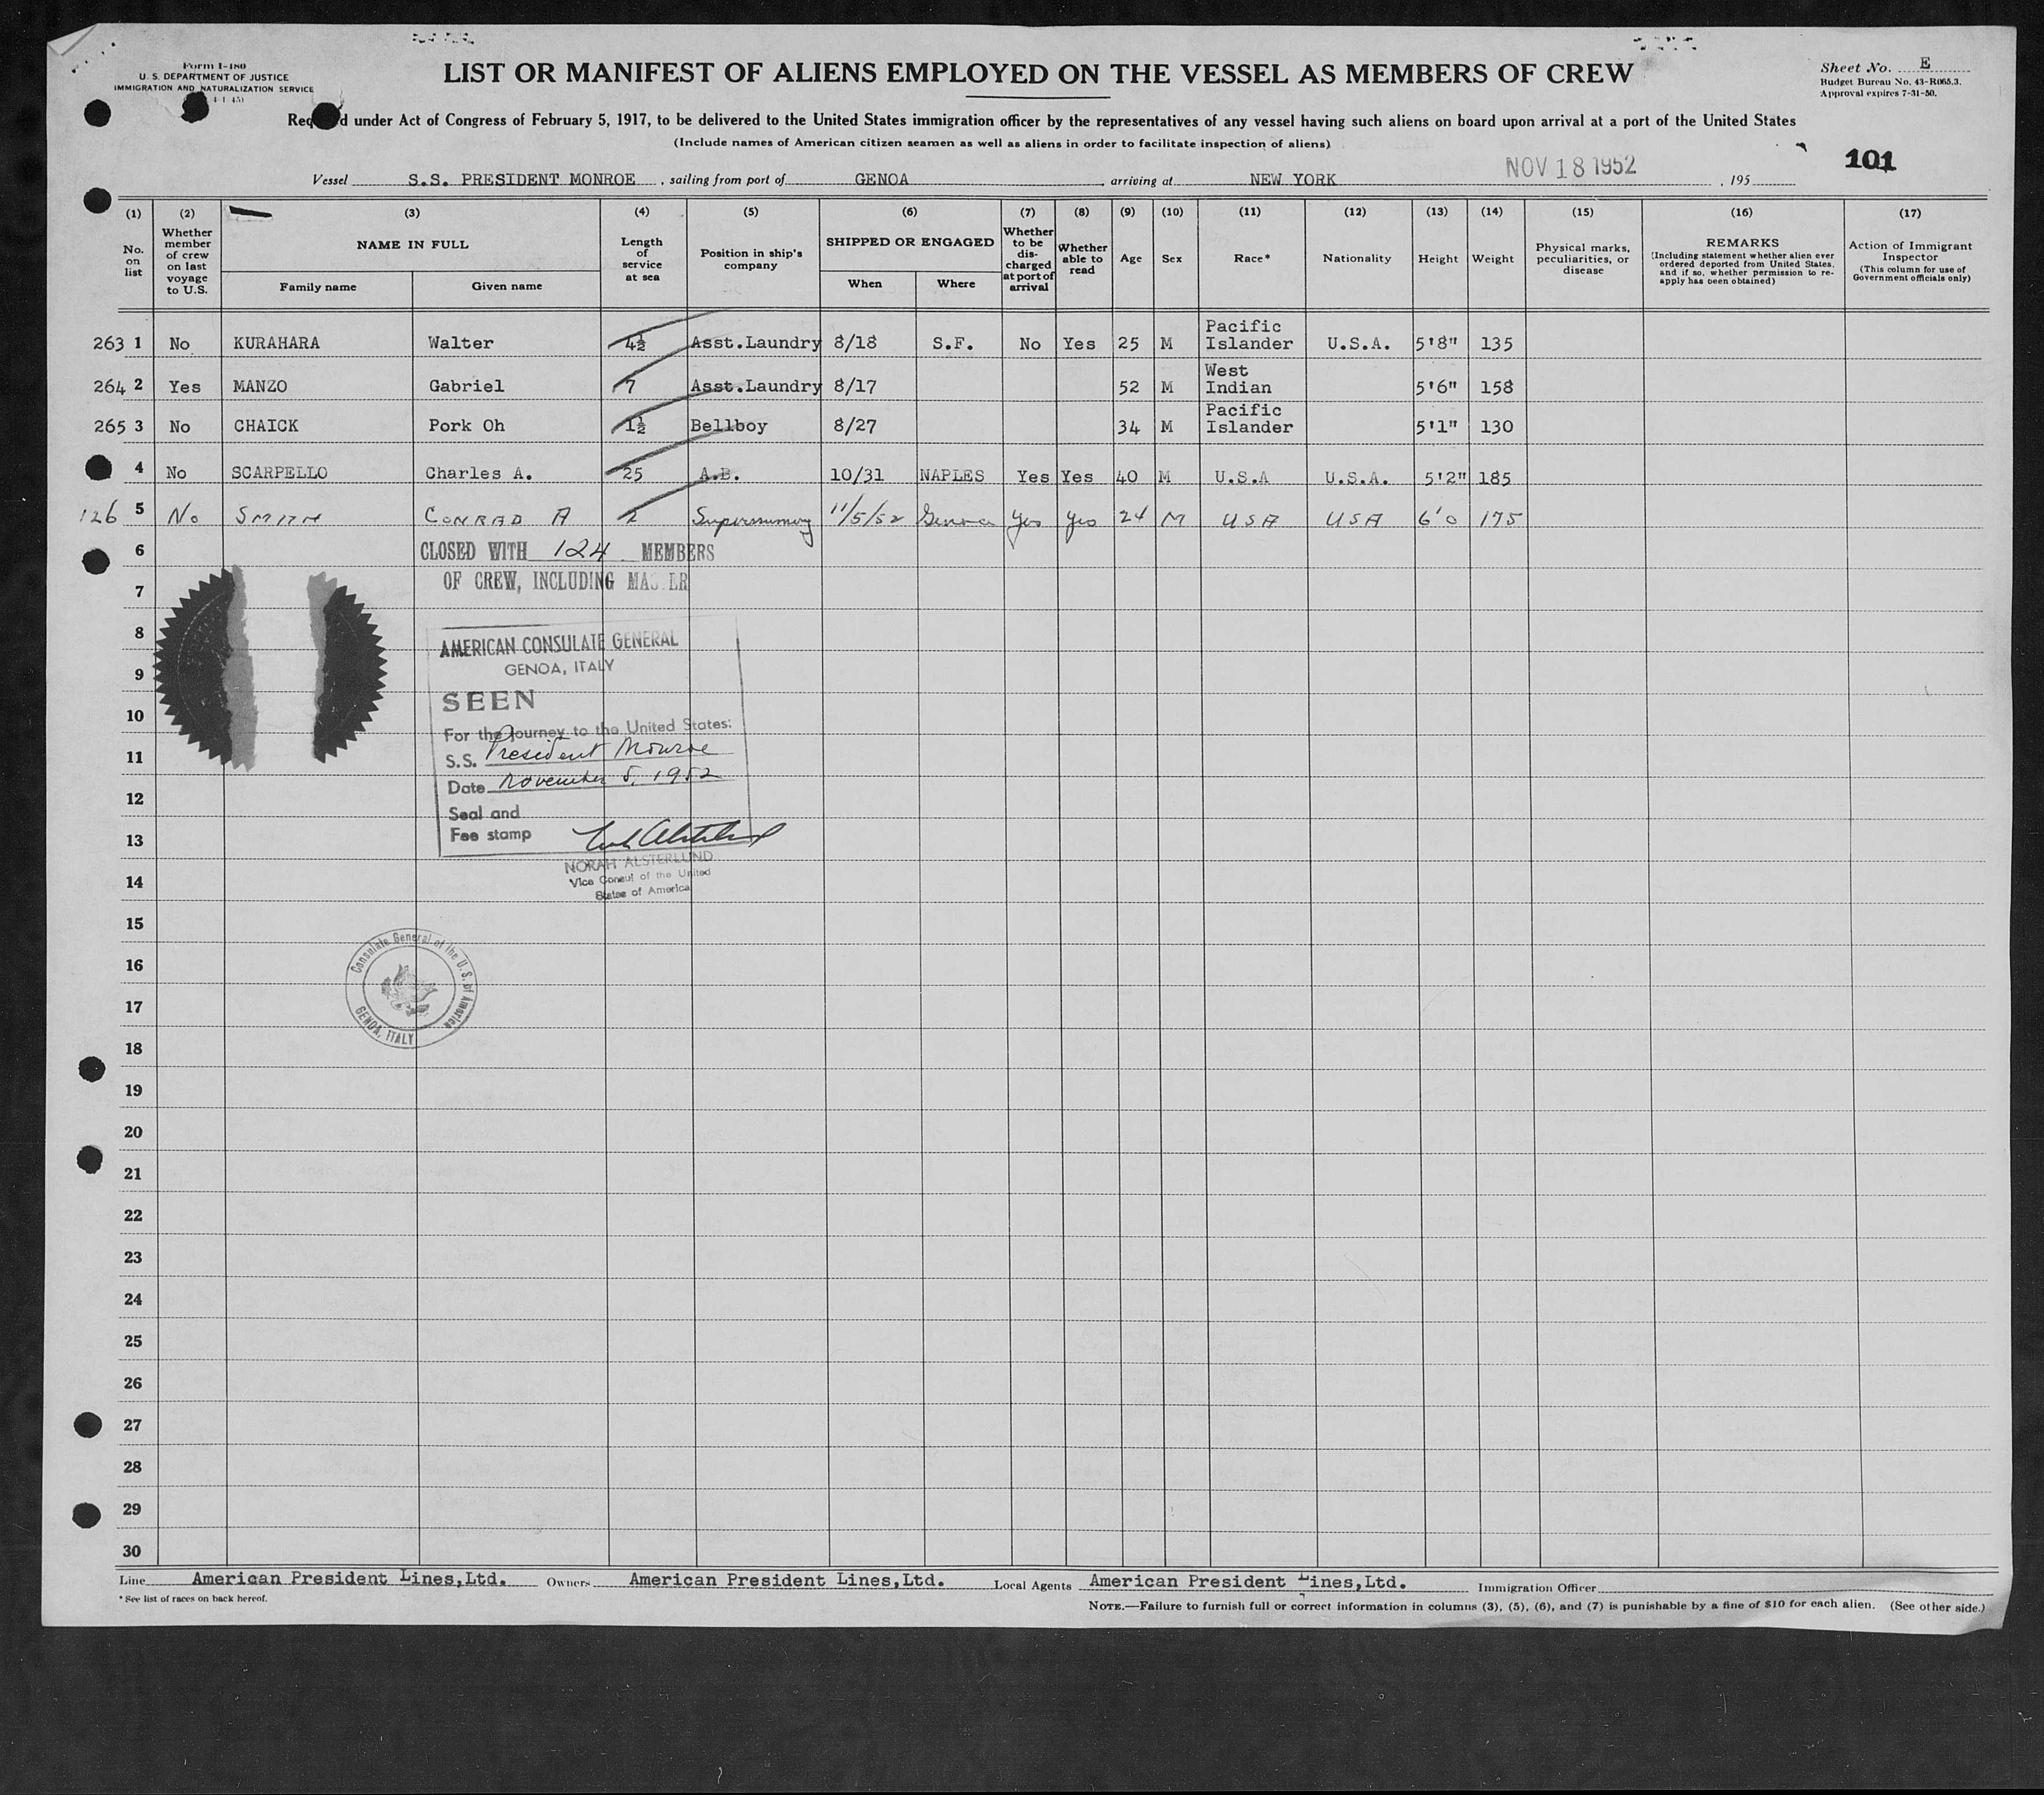 Form I-480
U. S. DEPARTMENT OF JUSTICE
IMMIGRATION AND NATURALIZATION SERVICE
LIST OR MANIFEST OF ALIENS EMPLOYED ON THE VESSEL AS MEMBERS OF CREW
Sheet No. E
Budget Bureau No. 43-R065.3.
Approval expires 7-31-50.
under Act of Congress of February 5, 1917, to be delivered to the United States immigration officer by the representatives of any vessel having such aliens on board upon arrival at a port of the United States
(Include names of American citizen seamen as well as aliens in order to facilitate inspection of aliens)
101
Vessel S.S. PRESIDENT MONROE , sailing from port of GENOA , arriving at NEW YORK NOV 18 1952 , 195
(1) (2) (3) (4) (5) (6) (7) (8) (9) (10) (11) (12) (13) (14) (15) (16) (17)
No. on list
Whether member of crew on last voyage to U.S.
NAME IN FULL
Family name Given name
Length of service at sea
Position in ship's company
SHIPPED OR ENGAGED
When Where
Whether to be dis-charged at port of arrival
Whether able to read
Age
Sex
Race*
Nationality
Height
Weight
Physical marks, peculiarities, or disease
REMARKS
(Including statement whether alien ever ordered deported from United States, and if so, whether permission to re-apply has been obtained)
Action of Immigrant Inspector
(This column for use of Government officials only)
263 1 No KURAHARA Walter 4½ Asst.Laundry 8/18 S.F. No Yes 25 M Pacific Islander U.S.A. 5'8" 135
264 2 Yes MANZO Gabriel 7 Asst.Laundry 8/17 52 M West Indian 5'6" 158
265 3 No CHAICK Pork Oh 1½ Bellboy 8/27 34 M Pacific Islander 5'1" 130
4 No SCARPELLO Charles A. 25 A.B. 10/31 NAPLES Yes Yes 40 M U.S.A U.S.A. 5'2" 185
126 5 No SMITH CONRAD A 2 11/5/52 Genoa Yes Yes 24 M USA USA 6'0 175
6 CLOSED WITH 124 MEMBERS
7 OF CREW, INCLUDING
8 AMERICAN CONSULATE GENERAL
GENOA, ITALY
9 SEEN
10 For the Journey to the United States:
11 S.S. President Monroe
Date November 5, 1952
12 Seal and
13 Fee stamp
NORAH ALSTERLUND
14 Vice Consul of the United
States of America
15
Consulate General of the U.S. of America
GENOA, ITALY
16
17
18
19
20
21
22
23
24
25
26
27
28
29
30
Line American President Lines,Ltd. Owners American President Lines,Ltd. Local Agents American President Lines,Ltd. Immigration Officer
* See list of races on back hereof.
NOTE.—Failure to furnish full or correct information in columns (3), (5), (6), and (7) is punishable by a fine of $10 for each alien. (See other side.)